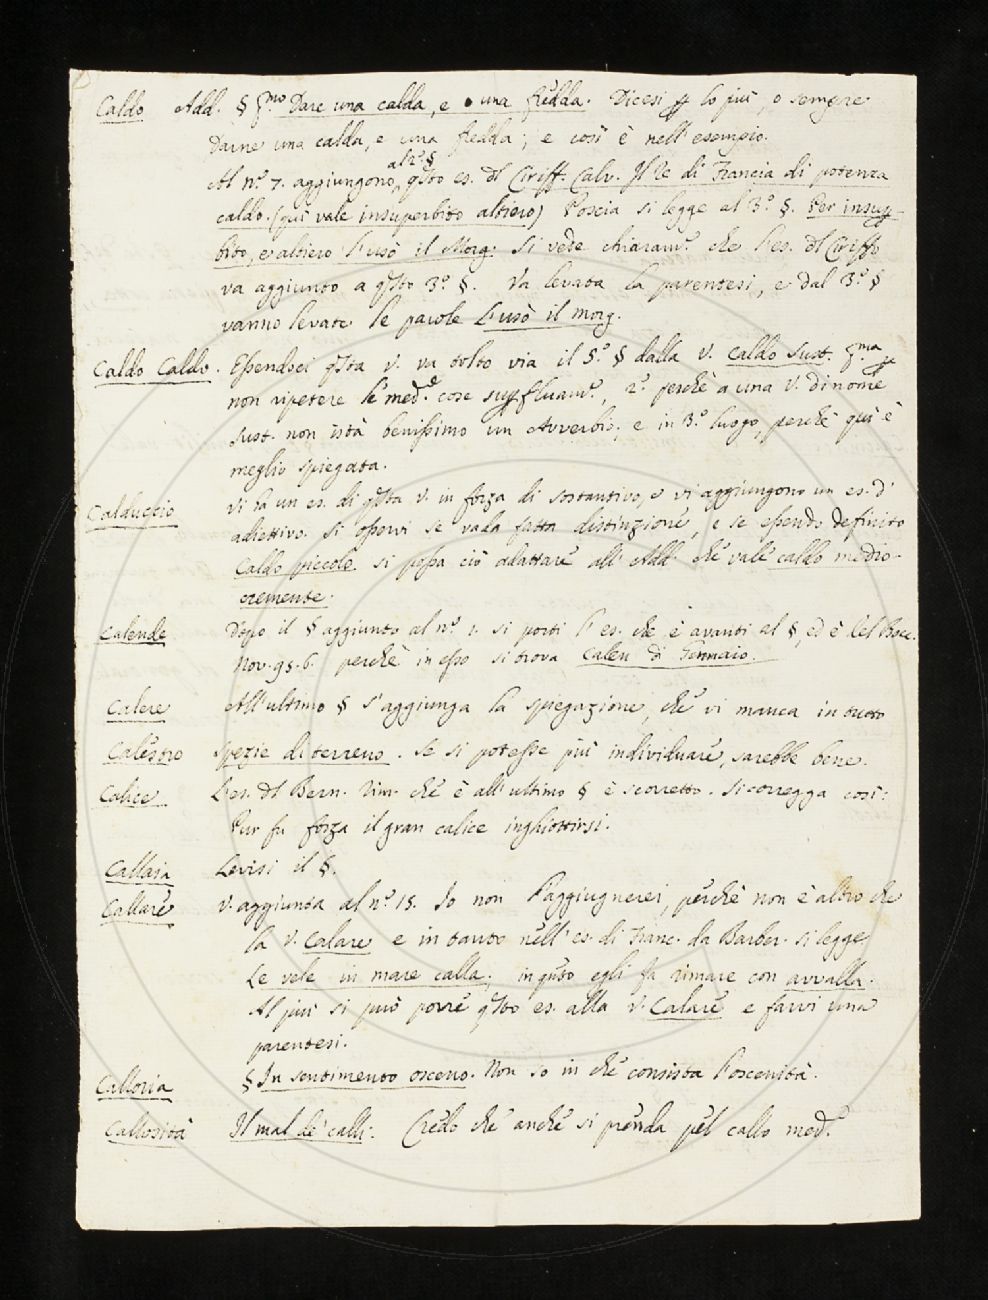 Caldo Add. § pmo Dare una calda, e una fredda. Dicesi p lo più, o sempre
Darne una calda, e una fredda; e così è nell'esempio.
al n.° §
Al n.° 7. aggiungono qsto es. dl Ciriff. Calv. Il Re di Francia di potenza
caldo. (quì vale insuperbito altiero) Poscia si legge al 3.° §. Per insup-
bito, e altiero l'usò il Morg: Si vede chiaram.e che l'es. dl Ciriffo
va aggiunto a qsto 3.° §. Va levata la parentesi, e dal 3.° §
vanno levate le parole l'usò il morg.
Caldo Caldo. Essendoci qsta V. va tolto via il 5.° § dalla V. Caldo Sust. pma p
non ripetere le med.e cose supfluam.e, 2.° perchè a una V. di nome
Sust. non istà benissimo un Avverbio; e in 3.° luogo, perchè quì è
meglio spiegata.
Calduccio Vi ha un es. di qsta V. in forza di sostantivo, e vi aggiungono un es. d'
adiettivo. Si osservi se vada fatta distinzione, e se essendo definito
Caldo piccolo si possa ciò adattare all'Add. che vale caldo medio-
cremente.
Calende Dopo il § aggiunto al n.° 1. si porti l'es. che è avanti al §, ed è del Bocc.
Nov. 95. 6. perchè in esso si trova Calen di Gennaio.
Calere All'ultimo § s'aggiunga la spiegazione, che vi manca in tutto
Calestro spezie di terreno. Se si potesse più individuare, sarebbe bene.
Calice L'es. dl Bern. rim. che è all'ultimo § è scorretto. Si corregga così:
Pur fu forza il gran calice inghiottirsi.
Callaia Levisi il §.
Callare V. aggiunta al n.° 15. Io non l'aggiugnerei, perchè non è altro che
la V. Calare e in tanto nell'es. di Franc. da Barber. si legge,
Le vele in mare calla, in qsto egli fa rimare con avvalla.
Al più si può porre qsto es. alla V. Calare e farvi una
parentesi.
Calloria § In sentimento osceno. Non so in che consista l'oscenità.
Callosità Il mal de' calli. Credo che anche si prenda pel callo med.o